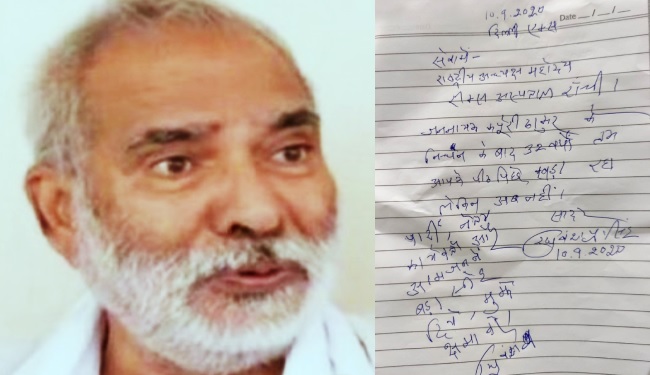 10.9.2020 Date __/__/__
दिल्ली एम्स
सेवामें-
राष्ट्रीय अध्यक्ष महोदय
रिम्स अस्पताल राँची।
जननायक कर्पूरी ठाकुर के
निधन के बाद 32 वर्षों तक
आपके पीठ पीछे खड़ा रहा
लेकिन अब नहीं।
पार्टी, नेता
आमजनने
बड़ा स्नेह
दिया, मुझे
क्षमा करें।
सादर
सिंह
10.9.2020